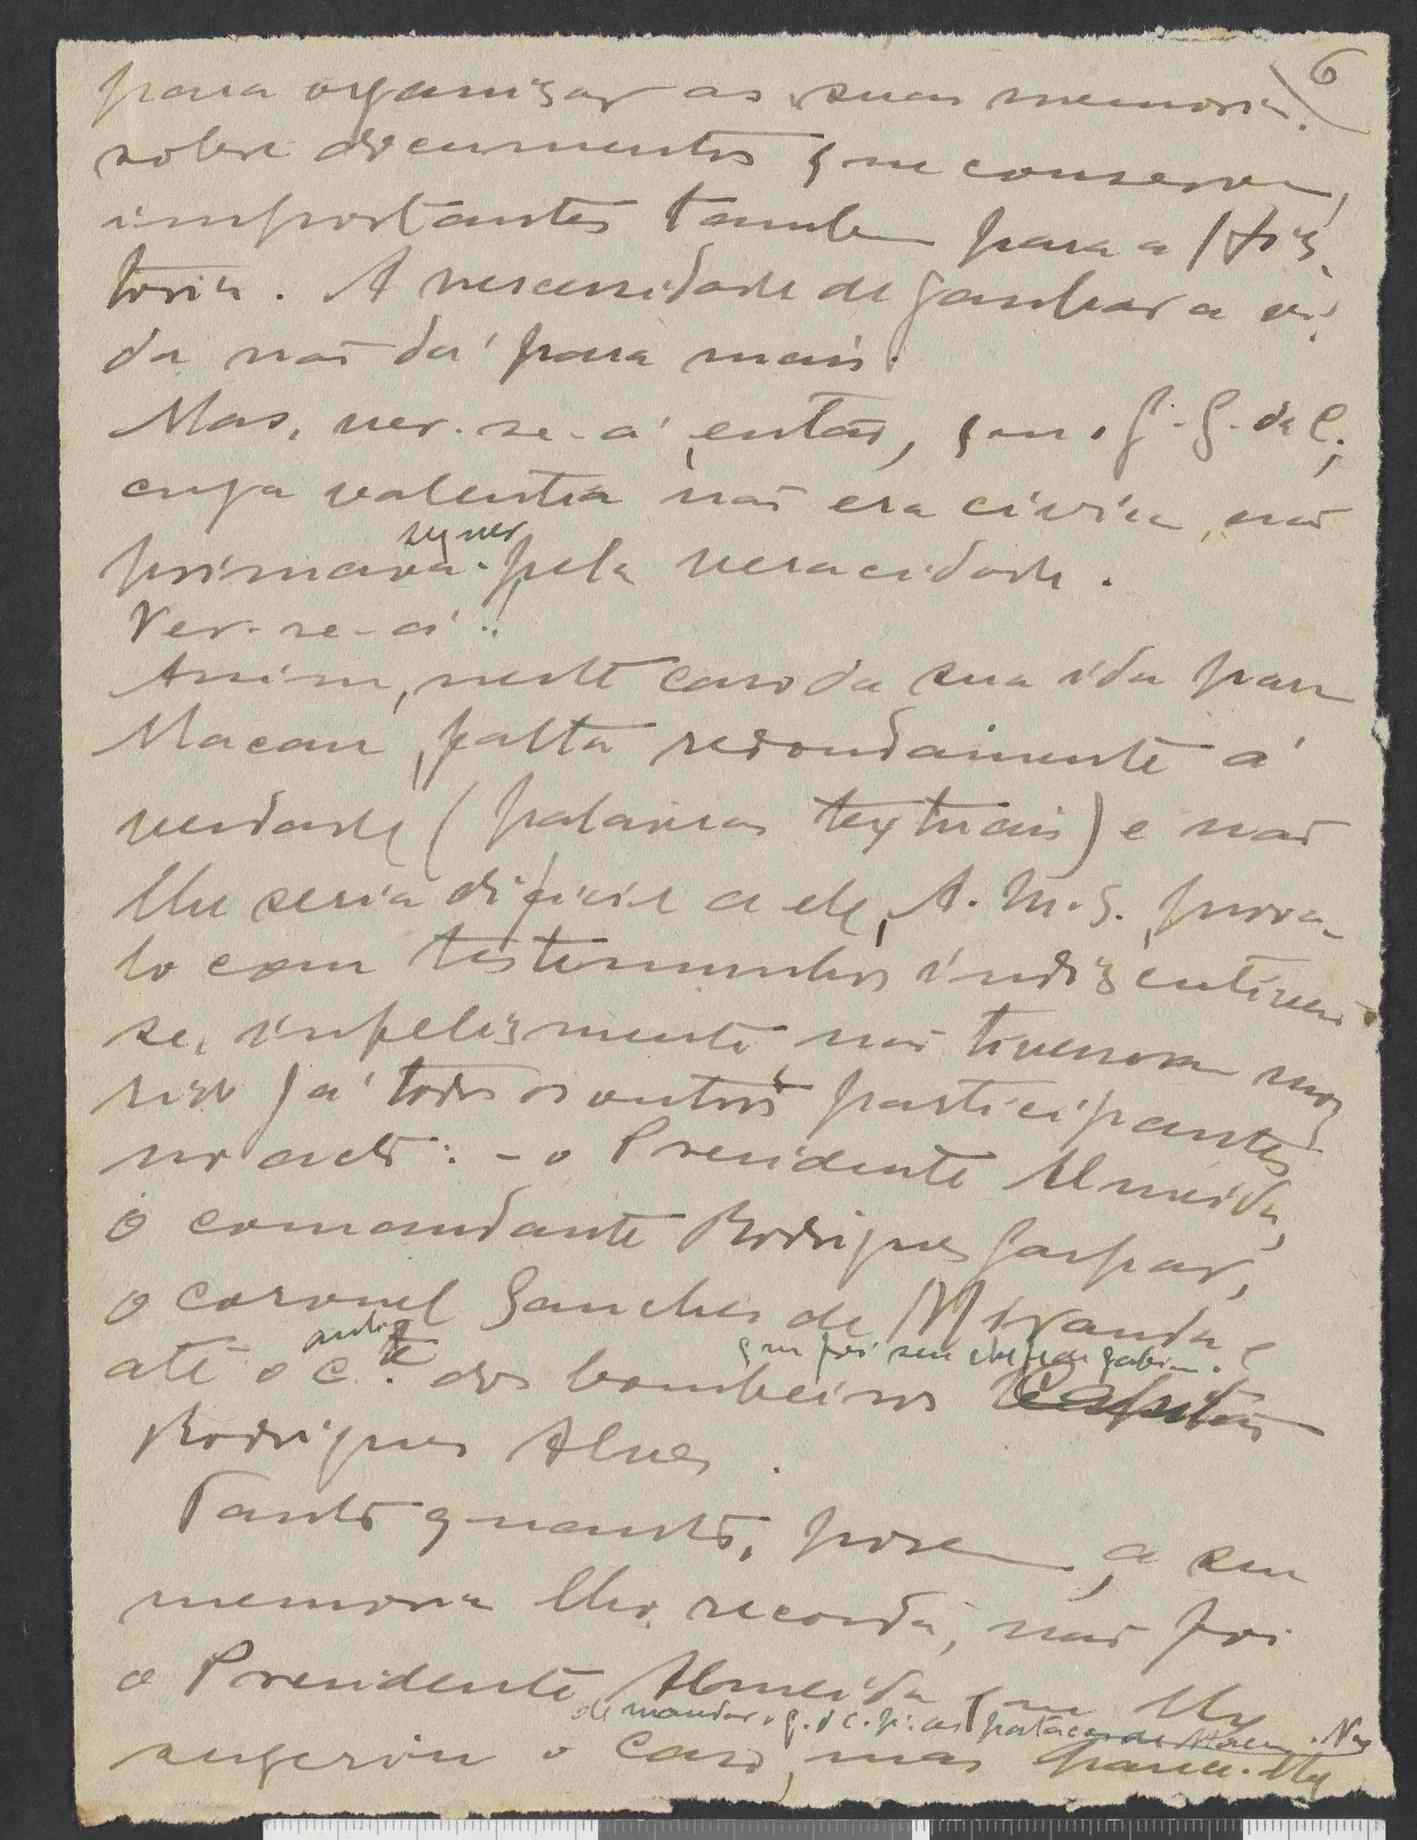 6
para organisar as suas memorias
sobre documentos que conserva,
importantes tambem para a His-
toria. A necessidade de ganhar a vi-
da não dá para mais.
Mas, ver-se-á, então, que o G. G. da C.,
cuja valentia não era civica, não
primava sequer pela veracidade.
Ver-se-á!!
Assim, neste caso da sua ida para
Macau, falta redondamente á
verdade (palavras textuais) e não
lhe seria dificil a ele, A. M. S., prova-
lo com testemunhos indiscutiveis
se, infelizmente, não tivessem mor-
rido já todos os outros participantes
no acto: - o Presidente Almeida,
o comandante Rodrigues Gaspar,
o coronel Sanches de Miranda e
até o antigo c.te dos bombeiros que foi seu chefe de gabin.e Capitão
Rodrigues Alves.
Tanto quanto, porem, a sua
memoria lho recorda, não foi
o Presidente Almeida que lhe
sugeriu o caso de mandar o G. d C. p.a as patacas de Macau. Não, mas parece-lhe